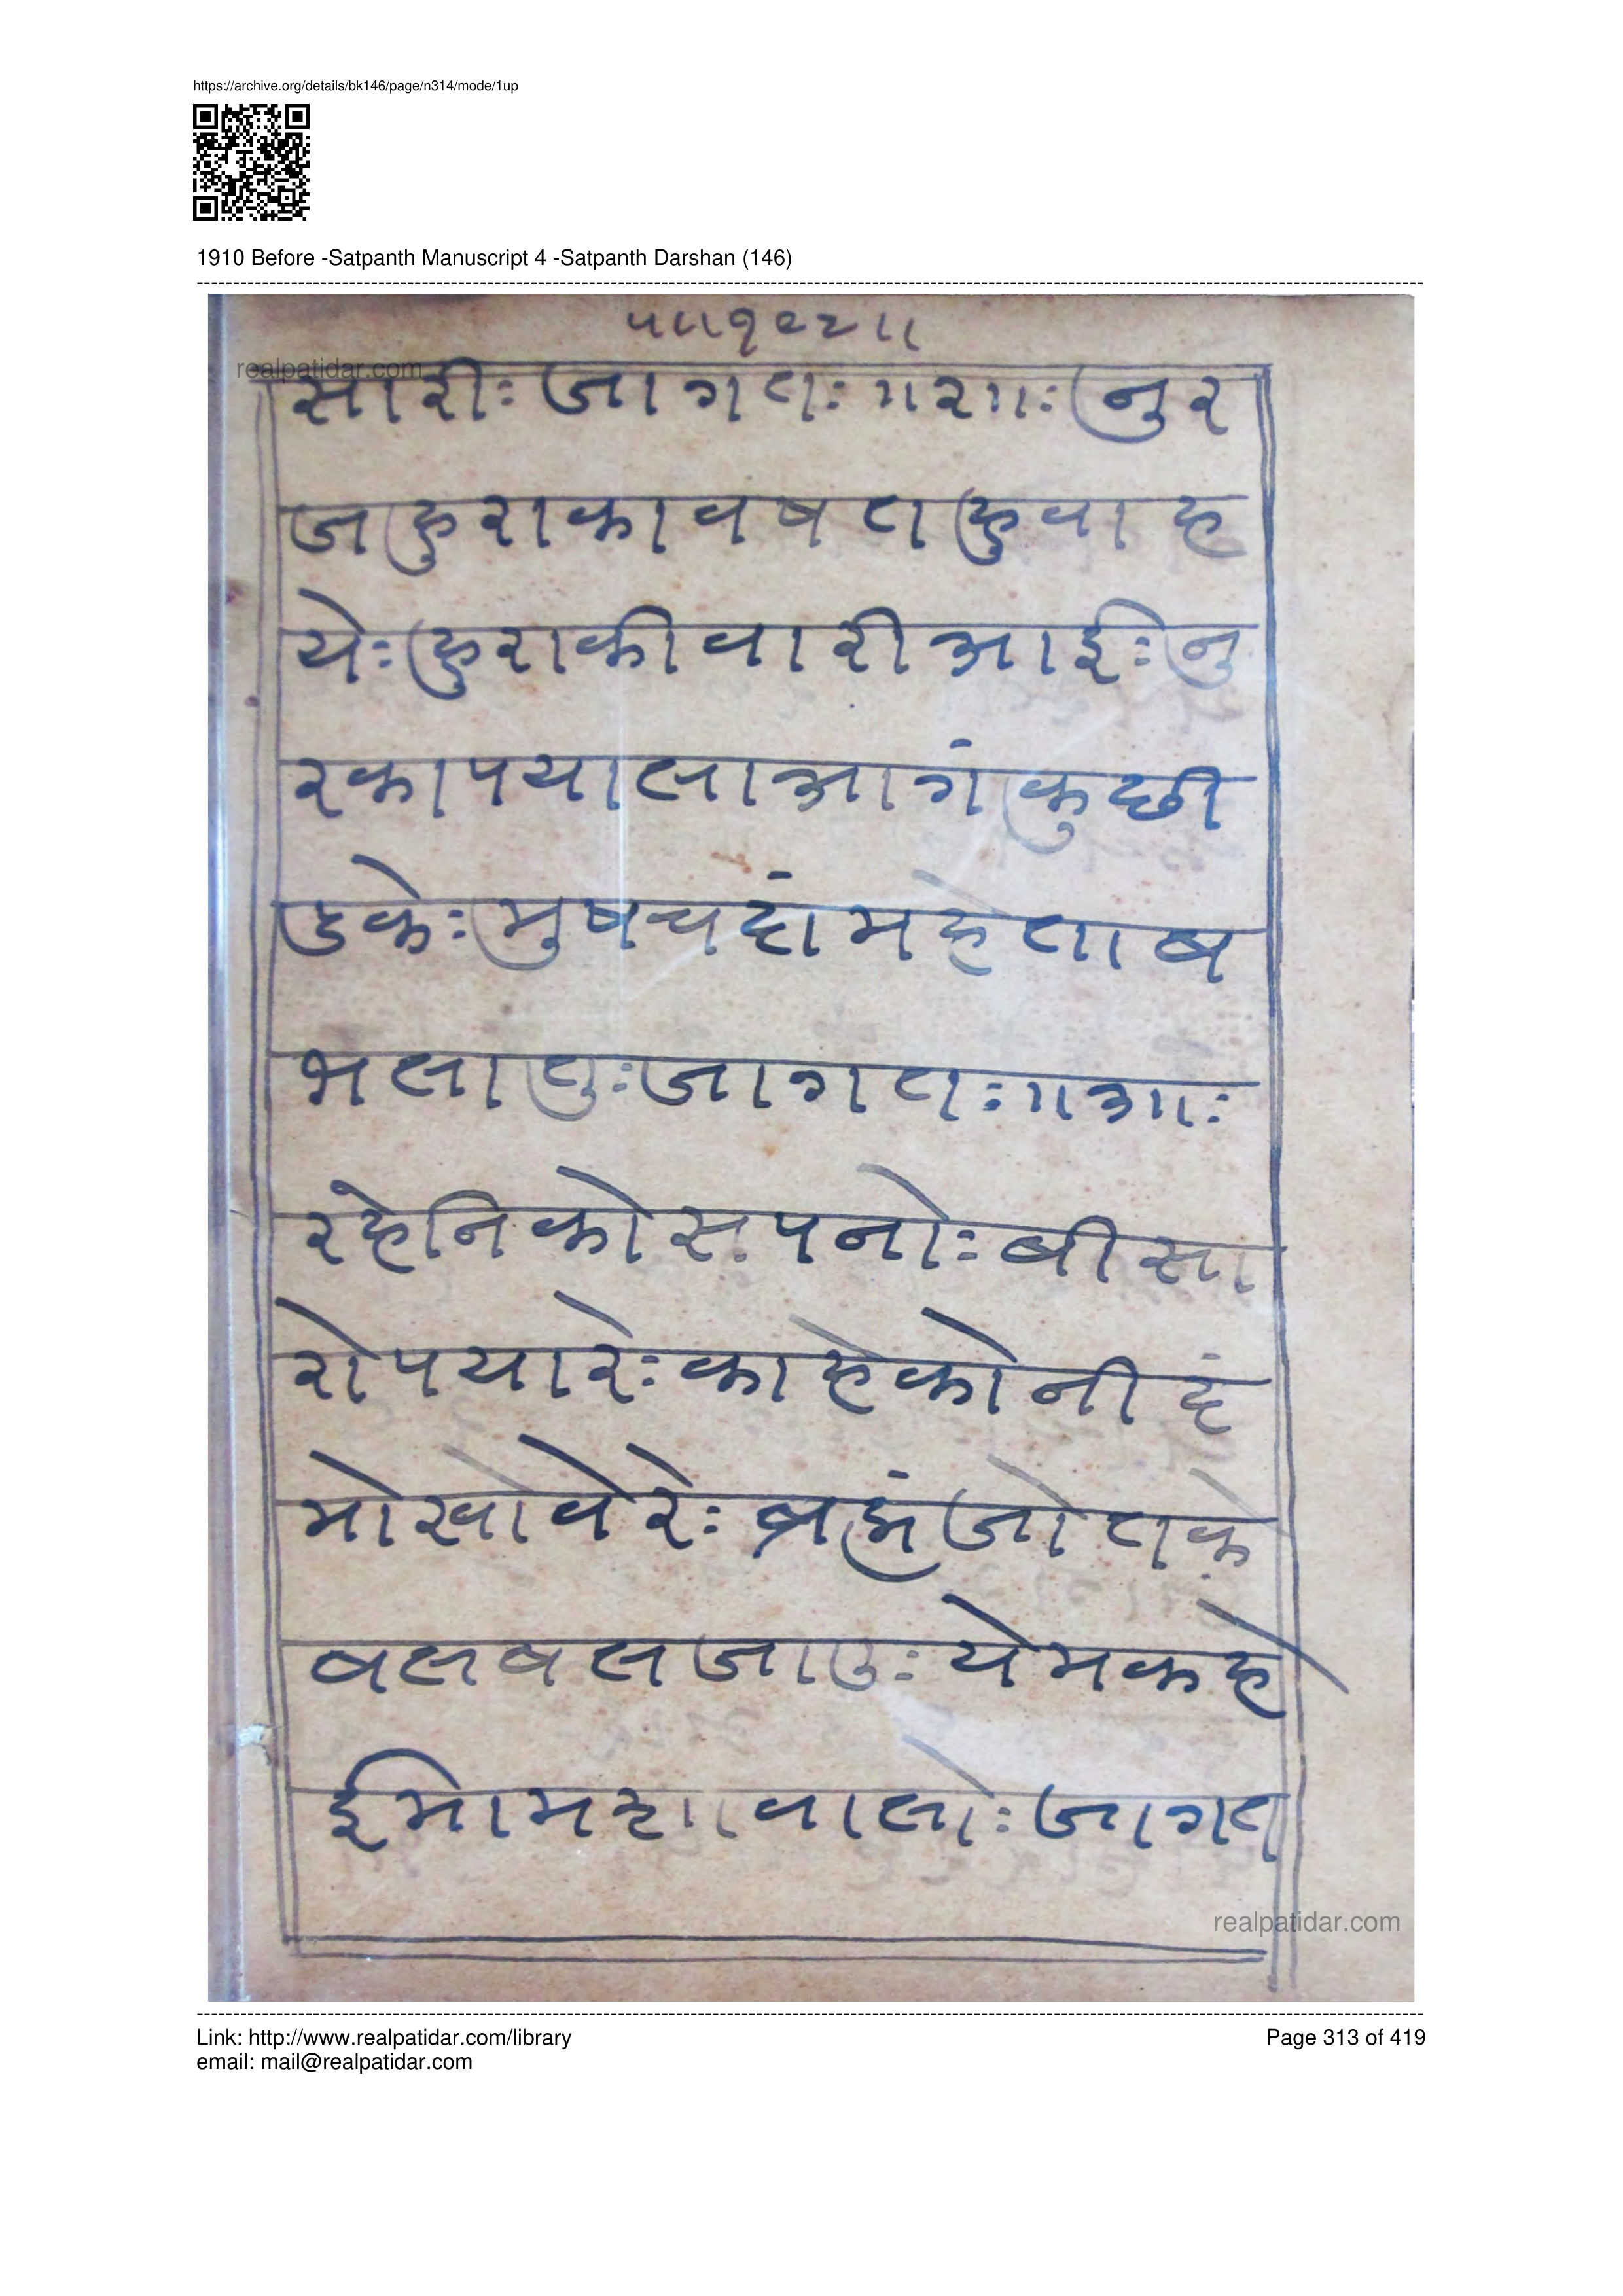 https://archive.org/details/bk146/page/n314/mode/1up
1910 Before -Satpanth Manuscript 4 -Satpanth Darshan (146)
realpatidar.com
सारीः जागतः ॥२॥ः नुर
जहुराका वषत हुवा ह
येः हुराकी वारी आईः नु
रका पयाला आगं कु छी
डकेः मुष चदां महेताब
भला युः जागतः ॥३॥ः
रहेनिको सपनोः बीसा
रो पयारेः काहेको नीदं
मो खोवेरेः ब्रह्मं जोतके
बल बल जाउः येम कहे
ईमाम शावालोः जागत
realpatidar.com
Link: http://www.realpatidar.com/library
Page 313 of 419
email: mail@realpatidar.com